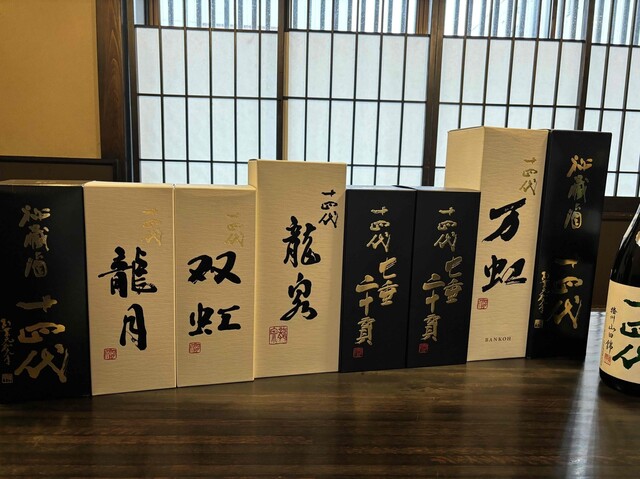 秘蔵酒
十四代
十四代
龍月
十四代
双虹
十四代
龍泉
十四代
七垂
二十貫
十四代
七垂
二十貫
十四代
万虹
BANKOH
秘蔵酒
十四代
播州山田錦
十四代